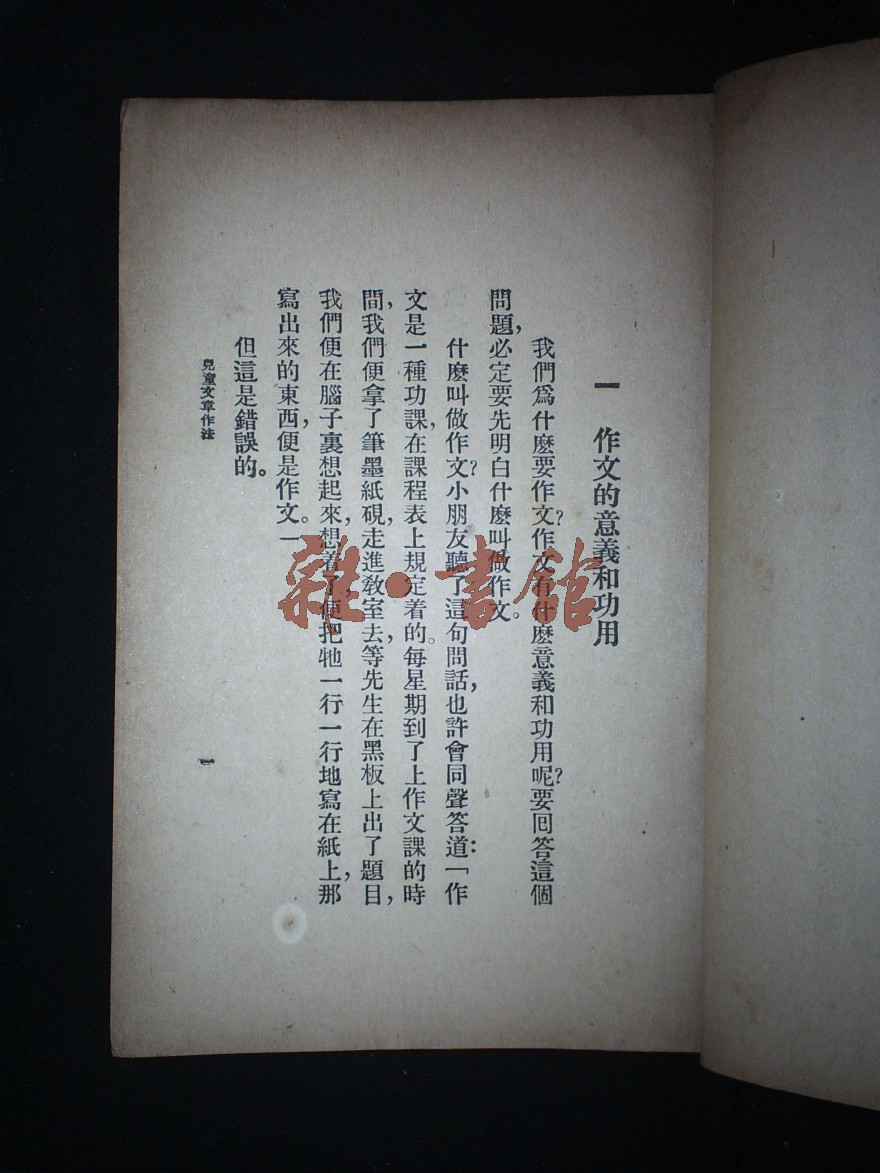 一　作文的意義和功用
我們爲什麽要作文?作文有什麽意義和功用呢?要回答這個
問題,必定要先明白什麽叫做作文。
什麽叫做作文?小朋友聽了這句問話,也許會同聲答道:「作
文是一種功課,在課程表上規定着的。每星期到了上作文課的時
間,我們便拿了筆墨紙硯,走進敎室去,等先生在黑板上出了題目,
我們便在腦子裏想起來,想着了,便把牠一行一行地寫在紙上,那
寫出來的東西,便是作文。」
但這是錯誤的。
兒童文章作法
一
雜·書館